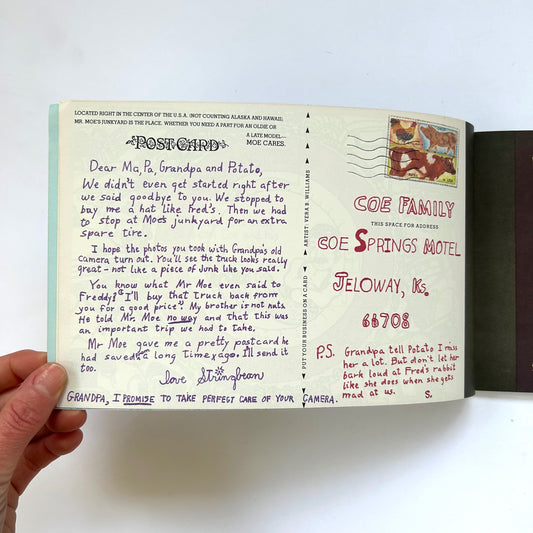 LOCATED RIGHT IN THE CENTER OF THE U.S.A. (NOT COUNTING ALASKA AND HAWAII)
MR. MOE'S JUNKYARD IS THE PLACE. WHETHER YOU NEED A PART FOR AN OLDIE OR
A LATE MODEL—
MOE CARES.
POST CARD
Dear Ma, Pa, Grandpa and Potato,
We didn't even get started right after
we said goodbye to you. We stopped to
buy me a hat like Fred's. Then we had
to stop at Moe's junkyard for an extra
spare tire.
I hope the photos you took with Grandpa's old
camera turn out. You'll see the truck looks really
great - not like a piece of junk like you said.
You know what Mr Moe even said to
Freddy? "I'll buy that truck back from
you for a good price." My brother is not nuts.
He told Mr. Moe no way and that this was
an important trip we had to take.
Mr Moe gave me a pretty postcard he
had saved from a long time ago. I'll send it
too.
love Stringbean
GRANDPA, I PROMISE TO TAKE PERFECT CARE OF YOUR CAMERA.
ARTIST: VERA B. WILLIAMS
PUT YOUR BUSINESS ON A CARD
COE FAMILY
THIS SPACE FOR ADDRESS
COE SPRINGS MOTEL
JELOWAY, Ks.
66708
P.S. Grandpa tell Potato I miss
her a lot. But don't let her
bark loud at Fred's rabbit
like she does when she gets
mad at us. S.